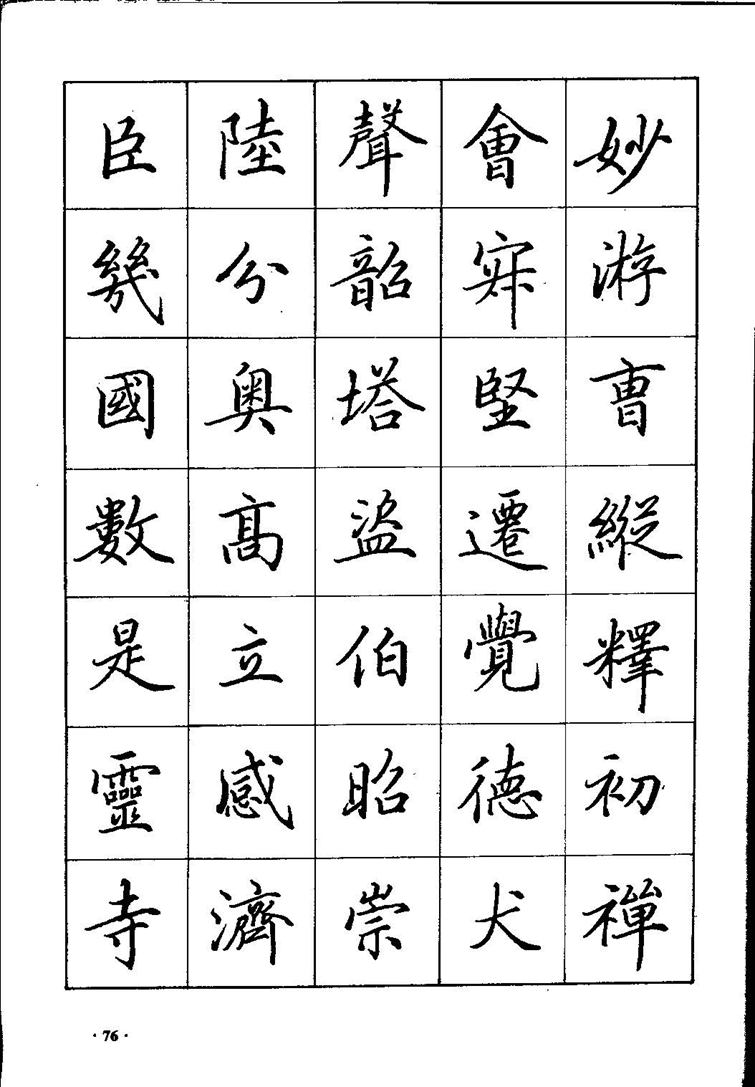 妙游曹縱釋初禪
會寂堅遷覺德犬
聲韶塔盜伯昭崇
陸分奥高立感濟
臣幾國數是靈寺
·76·